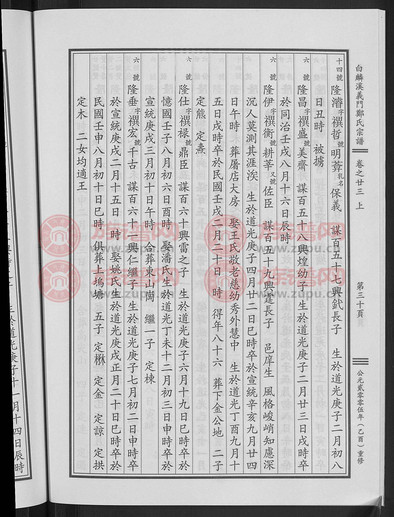 白麟溪義門鄭氏宗譜 卷之廿三 上 第三十頁 公元貳零零伍年(乙酉)重修
十四號 隆濬 字禩哲 號明葊 乳名保義 謀百五十七興 長子 生於道光庚子二月初八
日丑時 被擄
六號 隆昌 字禩盛 號美齋 謀百五十八興煌幼子 生於道光庚子二月廿三日戌時卒
於同治壬戌八月十六日辰時
六號 隆伊 字禩衡 號耕莘 又號佐臣 謀百五十九興 長子 邑庠生 風格峻峭知慮深
沉人莫測其涯涘 生於道光庚子四月廿二日巳時卒於宣統辛亥九月廿四
日午時 葬厝店大房 娶王氏敬老慈幼秀外慧中 生於道光丁酉九月十
五日戌時卒於民國壬戌二月二十日 時 得年八十六 葬下金公地 二子
定熊 定燾
六號 隆仕 字禩祿 號鼎臣 謀百六十興雷之子 生於道光庚子六月十九日巳時卒
民國壬子八月初六日酉時 娶潘氏生於道光丁未十二月初三日申時卒於
宣統庚戌三月初十日午時 合葬東山 繼一子 定棟
六號 隆垂 字禩宏 號千古 謀百六十一興仁繼子 生於道光庚子七月初二日申時卒
於宣統庚戌二月十五日 時 娶姚氏生於道光庚戌正月二十日巳時卒於
民國壬申八月初十日巳時 俱葬上塢塘 五子 定 定金 定 定諒 定拱
定木 二女均適王